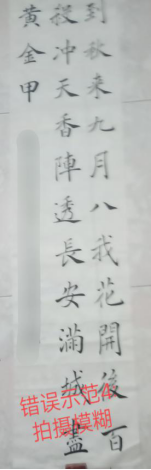 到秋来九月八我花開後百
殺冲天香陣透長安滿城盡
黄金甲
错误示范4
拍摄模糊